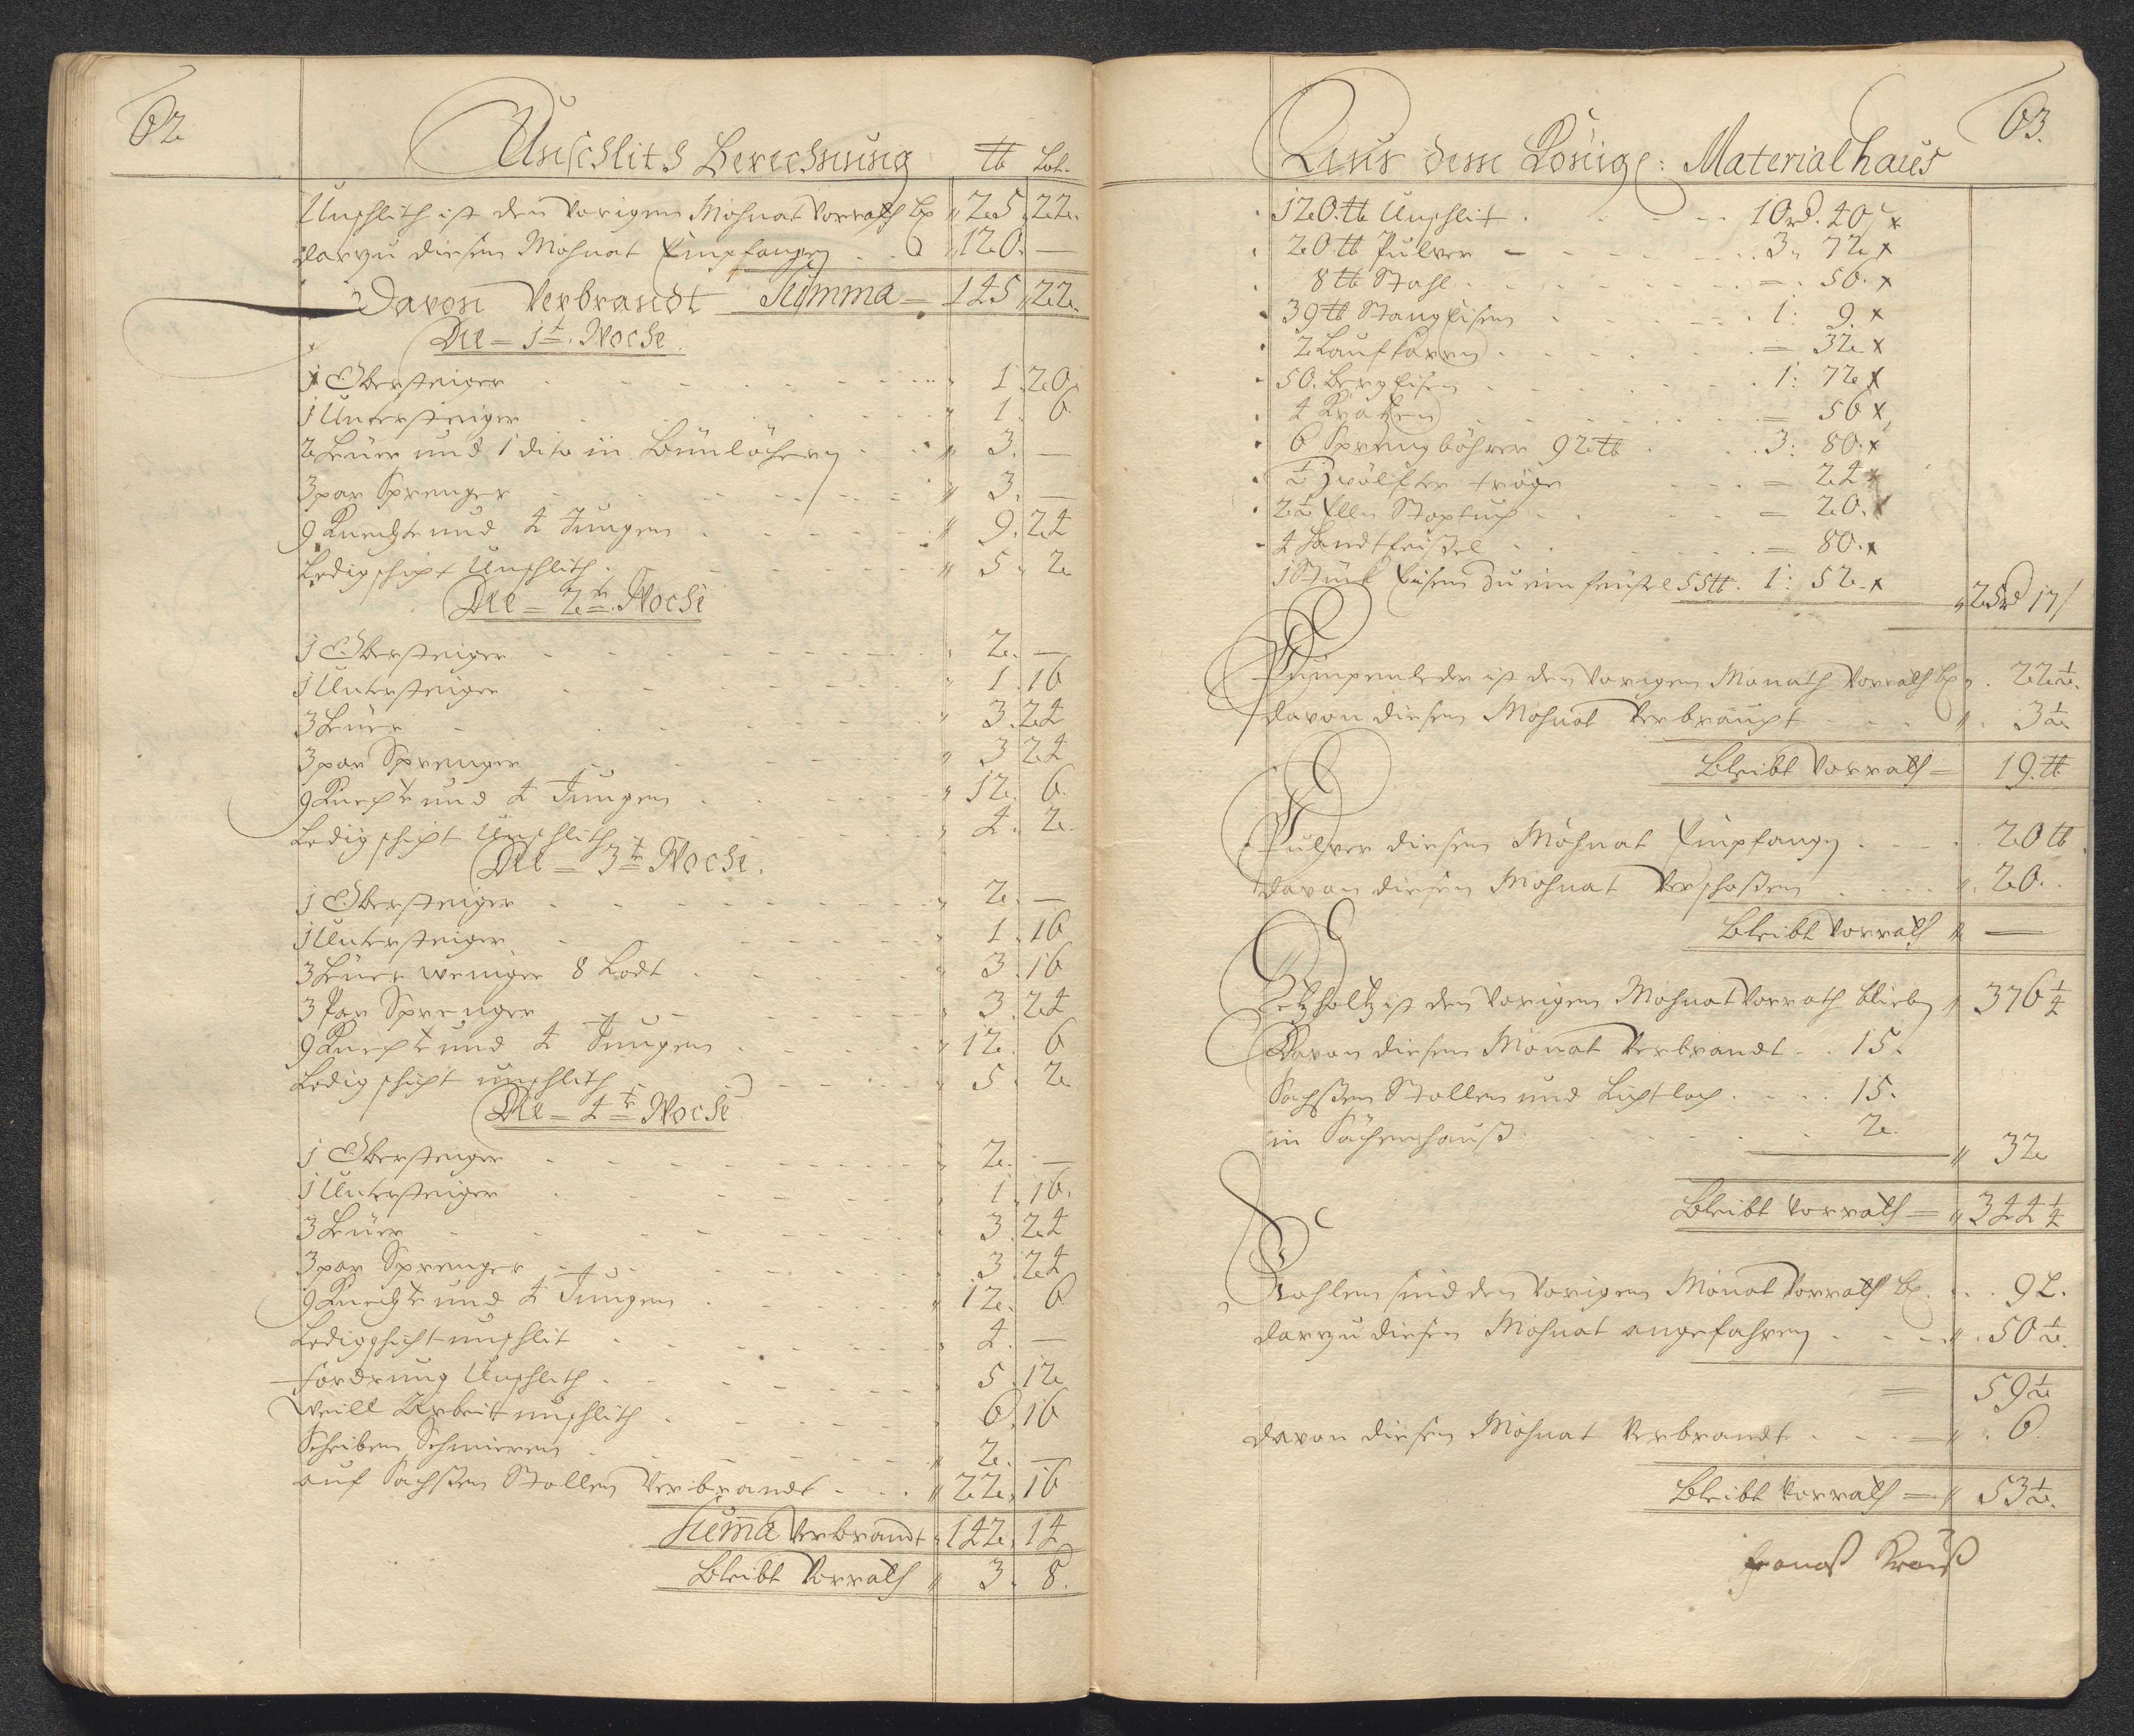 62
Unschlits Berechnung ℔ Lot.
Unschlith ist den Vorigen Mohnat Vorrath bl „ 25 „ 22.
darzu diesen Mohnat Empfangen „ 120. —
Davon Verbrandt Summa = 145 „ 22.
Die = 1te. Woche.
1 Obersteiger 1. 20.
1 Untersteiger 1. 6
2 Heuer und 1 dito in 3. —
3 par Sprenger 3. —
9 Knechte und 4 Jungen 9. 24
Ledigschicht Unschlith. 5. 2
Die = 2te. Woche
1 Obersteiger 2. —
1 Untersteiger 1. 16
3 Heuer 3. 24
3 par Sprenger 3 24
9 Knechte und 4 Jungen 12. 6.
Ledigschicht Unschlith 4. 2.
Die = 3te Woche.
1 Obersteiger 2. —
1 Untersteiger 1. 16
3 Heuer weniger 8 Lodt 3. 16
3 Par Sprenger 3. 24
9 Knechte und 4 Jungen 12. 6
Ledigschicht unschlith 5. 2
Die = 4te Woche
1 Obersteiger 2. —
1 Untersteiger 1. 16.
3 Heuer 3. 24
3 par Sprenger 3. 24
9 Knechte und 4 Jungen 12. 6
Ledigschicht unschlit 4. —
fördrung Unschlith 5. 12
Weill Arbeit unschlith 6. 16
Scheiben Schmieren 2. —
auf Sachsen Stollen Verbrandt 22. 16
Sum̃a Verbrandt 142. 14
Bleibt Vorrath 3. 8.
63.
Aus dem Königl: Materialhaus
120. ℔ Unschlit 10 rd. 40 x
20 ℔ Pulver 3. 72 x
8 ℔ Stahl = 50. x
39 ℔ Stangeisen 1: 9 x
2 Laufkarrn = 32 x
50. Bergeisen 1: 72 x
4 Kratzen = 56 x
6 Sprengböhrer 92 ℔ 3: 80. x
½ Zwölfter tröge = 24 x
2½ Ellen = 20. x
4 Handtfeistel = 80. x
1 Stück Eisen zu ein feustel 55 ℔. 1: 52. x
„ 25 rd 17/
Pumpenleder ist den Vorigen Monath Vorrath bl „ 22½.
davon diesen Mohnat Verbraucht „ 3½
Bleibt Vorrath = 19. ℔
Pulver diesen Mohnat Empfangen 20 ℔
davon diesen Mohnat Verschoßen „ 20.
Bleibt Vorrath „ —
Setzholtz ist den Vorigen Mohnat Vorrath blieben „ 376¼
davon diesen Monat Verbrandt 15.
Sachsen Stollen und Lichtloch 15.
in Sächenhauß 2.
„ 32
Bleibt Vorrath = „ 344¼
Kohlen sind den Vorigen Monat Vorrath bl. 9 L.
darzu diesen Mohnat angefahren „ 50½.
= 59½
davon diesen Mohnat Verbrandt = „ 6
Bleibt Vorrath = „ 53½.
Krauß